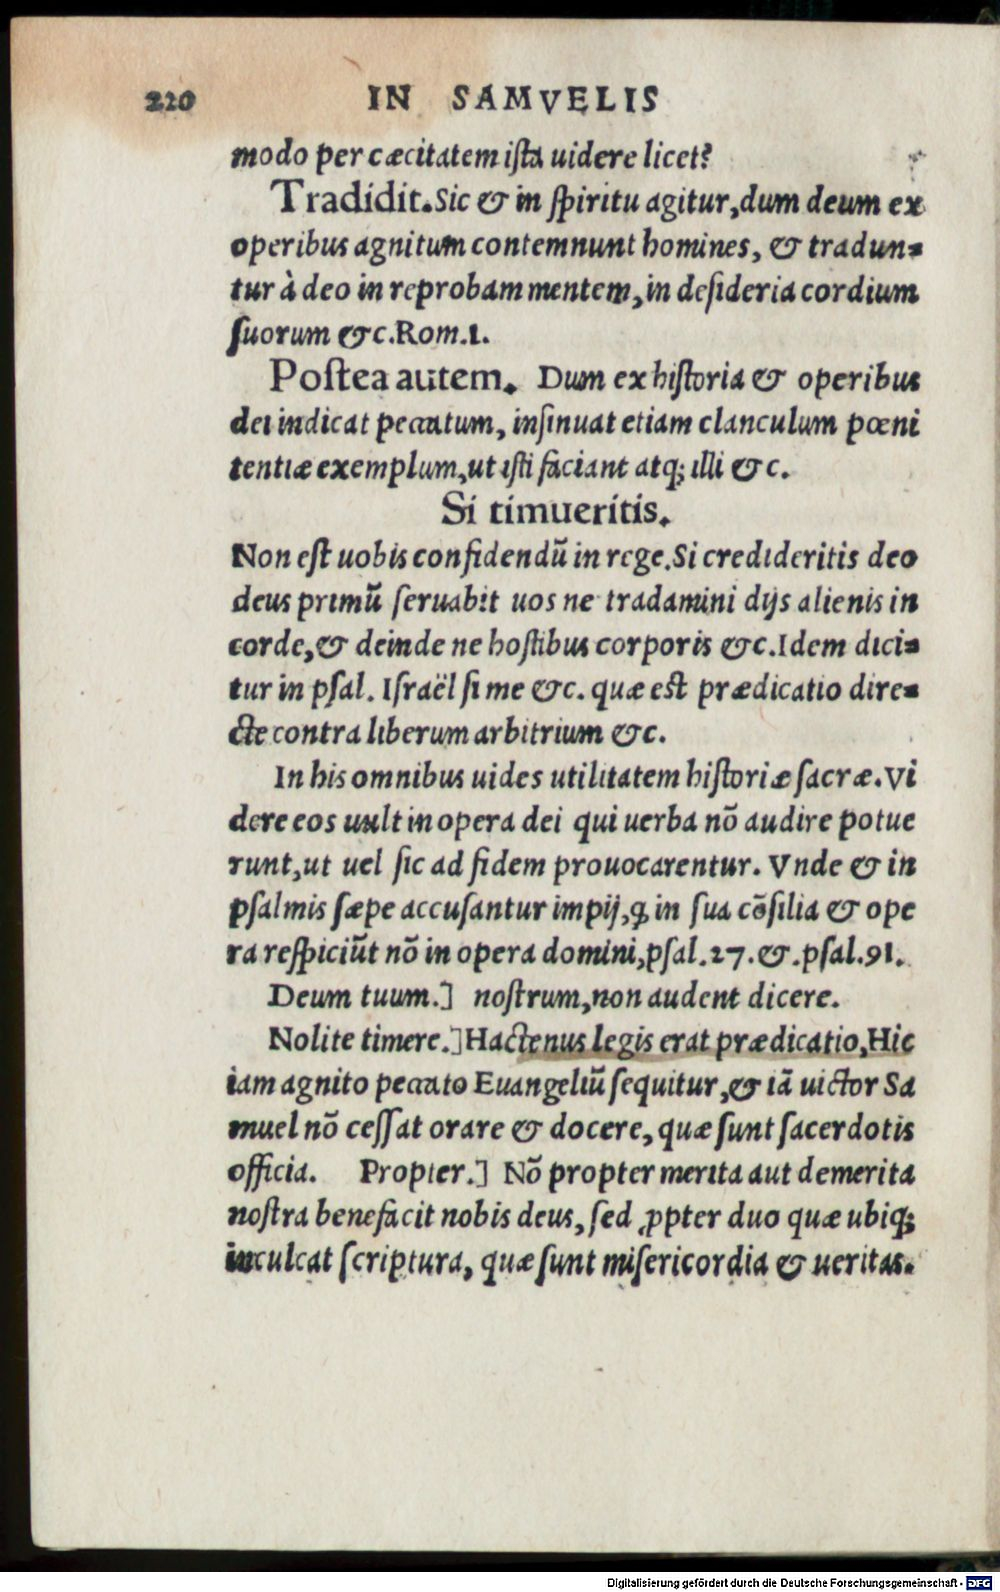 220 IN SAMVELIS
modo per cæcitatem ista uidere licet?
Tradidit. Sic & in spiritu agitur, dum deum ex
operibus agnitum contemnunt homines, & tradun=
tur à deo in reprobam mentem, in desideria cordium
suorum &c. Rom. 1.
Postea autem. Dum ex historia & operibus
dei indicat peccatum, insinuat etiam clanculum pœni
tentiæ exemplum, ut isti faciant atq; illi &c.
Si timueritis.
Non est uobis confidendū in rege. Si credideritis deo
deus primū seruabit uos ne tradamini dijs alienis in
corde, & deinde ne hostibus corporis &c. Idem dici=
tur in psal. Israël si me &c. quæ est prædicatio dire=
cte contra liberum arbitrium &c.
In his omnibus uides utilitatem historiæ sacræ. Vi
dere eos uult in opera dei qui uerba nō audire potue
runt, ut uel sic ad fidem prouocarentur. Vnde & in
psalmis sæpe accusantur impij, ꝙ in sua cōsilia & ope
ra respiciūt nō in opera domini, psal. 27. &. psal. 91.
Deum tuum.] nostrum, non audent dicere.
Nolite timere.] Hactenus legis erat prædicatio, Hic
iam agnito peccato Euangeliū sequitur, & iā uictor Sa
muel nō cessat orare & docere, quæ sunt sacerdotis
officia. Propter.] Nō propter merita aut demerita
nostra benefacit nobis deus, sed ꝓpter duo quæ ubiq;
inculcat scriptura, quæ sunt misericordia & ueritas.
Digitalisierung gefördert durch die Deutsche Forschungsgemeinschaft - DFG